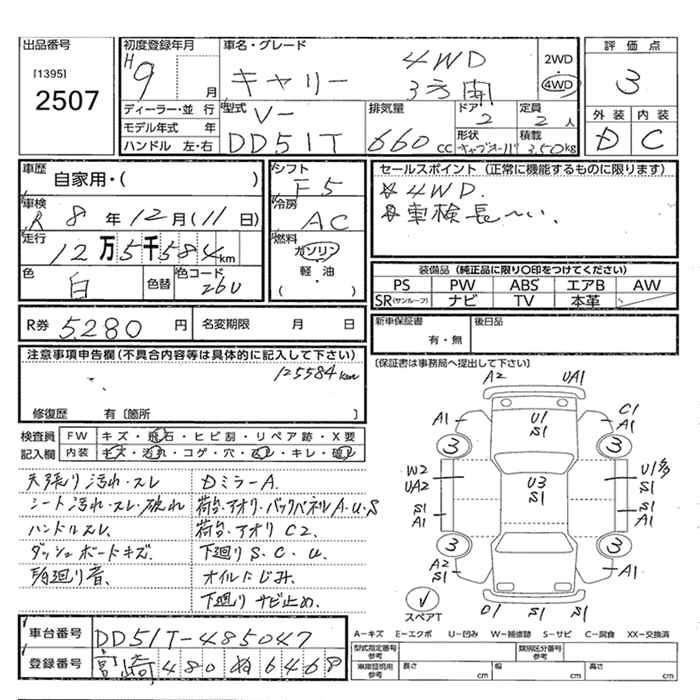 出品番号
[1395]
2507
初度登録年月
H9 月
車名・グレード
4WD
キャリー 3方開
2WD
4WD
評価点
3
外装 内装
D C
ディーラー・並行
モデル年式 年
ハンドル 左・右
型式
V-
DD51T
排気量
660 CC
ドア
2
定員
2 人
形状
キャブオーバ
積載
350kg
車歴
自家用・( )
車検
R 8 年 12 月(11 日)
走行
12万5千584km
色
白
色替
色コード
26U
シフト
F5
冷房
AC
燃料
ガソリン
軽・油
( )
セールスポイント(正常に機能するものに限ります)
☆4WD.
☆車検長〜い、
装備品(純正品に限り○印をつけてください)
PS PW ABS エアB AW
SR(サンルーフ) ナビ TV 本革
R券 5,280 円
名変期限 月 日
新車保証書
有・無
後日品
[保証書は事務局へ提出して下さい]
注意事項申告欄(不具合内容等は具体的に記入して下さい)
125584km
修復歴 有〔箇所 〕
検査員
記入欄
FW キズ・飛石・ヒビ割・リペア跡・X要
内装 キズ・汚れ・コゲ・穴・スレ・キレ・破レ
天張り汚れ・スレ
シート汚れ・スレ・破れ
ハンドルスレ、
ダッシュボードキズ.
足廻り音、
DミラーA.
荷台・アオリ・バックパネルA・U・S
荷台・アオリC2.
下廻りS.C.U.
オイルにじみ.
下廻りサビ止め.
A2 UA1
A1 U1 S1 C1 A1
3 3
W2 UA2 U3 S1 U1多 S1
S1 A1 S1 A1
3 3
A2 S1 A1
スペアT
D1 S1 S1
車台番号
DD51T-485047
登録番号
宮崎480ぬ6468
A-キズ E-エクボ U-凹み W-補修跡 S-サビ C-腐食 XX-交換済
型式指定番号
参考
類別区分番号
参考
車庫証明用
参考
長さ cm
幅 cm
高さ cm